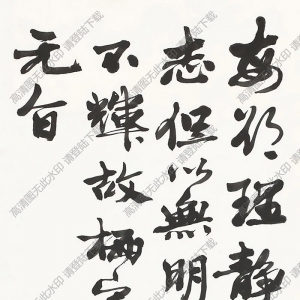 每以理静
志但以無明
不輝故栖宅
无自
高清图无此水印 请登陆下载